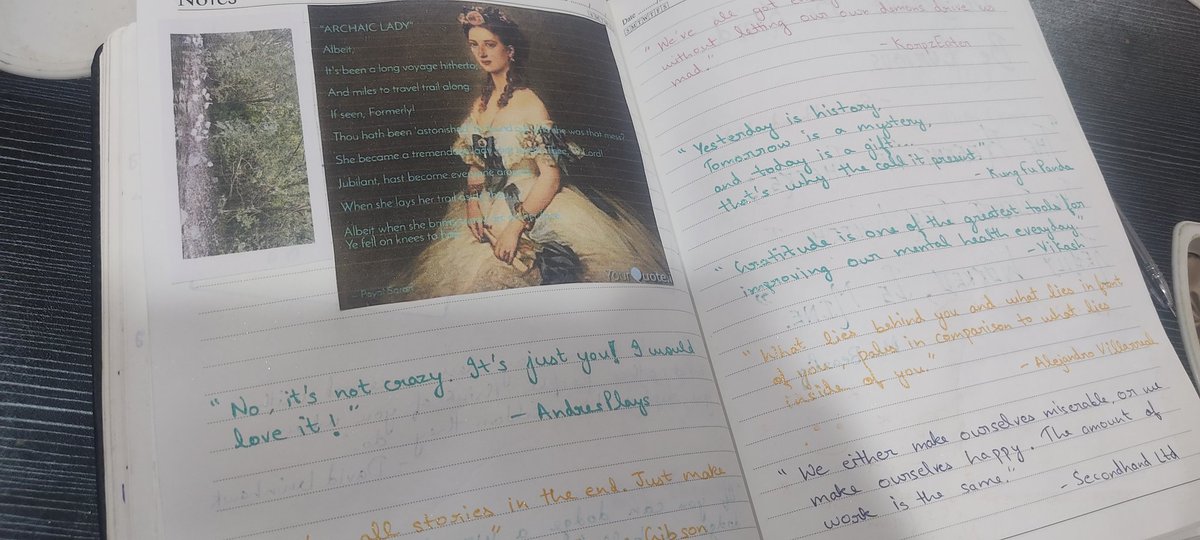 Notes
"ARCHAIC LADY"
Albeit,
It's been a long voyage hitherto,
And miles to travel trail along
If seen, Formerly!
Thou hath been 'astonished was that mess?
She became a tremend Lord!
Jubilant, hast become everyone around
When she lays her trail aside
Albeit when she brings
Ye fell on knees to
- Payal Saran
YourQuote.in
"No, it's not crazy. It's just you! I would
love it!"
- AndresPlays
all stories in the end. Just make
Gibson
Date
"We've all got
without letting our own demons drive us
mad."
- KorpzEater
"Yesterday is history,
Tomorrow is a mystery,
and today is a gift...
that's why the call it present."
- Kung Fu Panda
"Gratitude is one of the greatest tools for
improving our mental health everyday."
- Vikash
"What lies behind you and what lies in front
of you, pales in comparison to what lies
inside of you."
- Alejandro Villarreal
"We either make ourselves miserable, or we
make ourselves happy. The amount of
work is the same."
- Secondhand Ltd